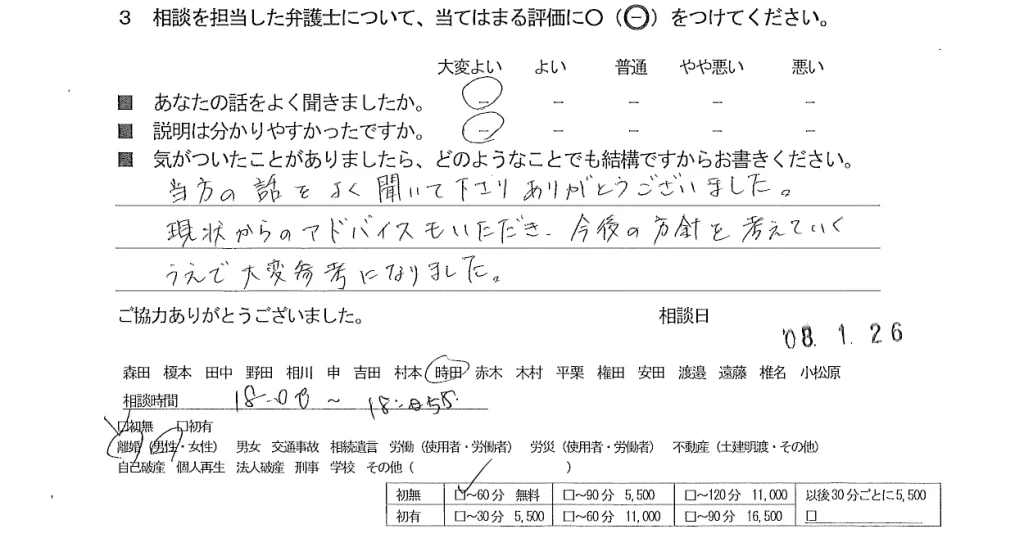 3 相談を担当した弁護士について、当てはまる評価に○（㊀）をつけてください。
大変よい よい 普通 やや悪い 悪い
■ あなたの話をよく聞きましたか。 － － － － －
■ 説明は分かりやすかったですか。 － － － － －
■ 気がついたことがありましたら、どのようなことでも結構ですからお書きください。
当方の話をよく聞いて下さりありがとうございました。
現状からのアドバイスもいただき、今後の方針を考えていく
うえで大変参考になりました。
ご協力ありがとうございました。 相談日
'08. 1. 26
森田 榎本 田中 野田 相川 申 吉田 村本 時田 赤木 木村 平栗 権田 安田 渡邉 遠藤 椎名 小松原
相談時間 18:00 ～ 18:55
□初無 □初有
離婚（男性・女性） 男女 交通事故 相続遺言 労働（使用者・労働者） 労災（使用者・労働者） 不動産（土建明渡・その他）
自己破産 個人再生 法人破産 刑事 学校 その他（ ）
初無 □～60分 無料 □～90分 5,500 □～120分 11,000 以後30分ごとに5,500
初有 □～30分 5,500 □～60分 11,000 □～90分 16,500 □